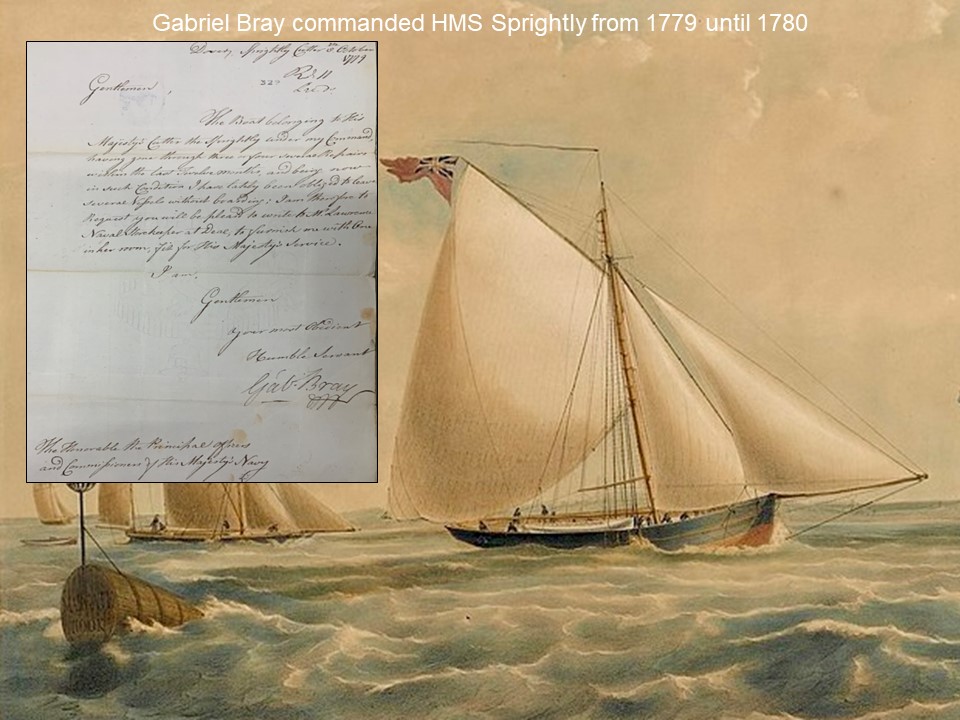 Gabriel Bray commanded HMS Sprightly from 1779 until 1780
Dover, Sprightly Cutter October
1779
Gentlemen,
The Boat belonging to His
Majesty's Cutter the Sprightly under my Command,
having gone through three or four several Repairs
within the last twelve months, and being now
in such Condition I have lately been obliged to leave
several Vessels without boarding; I am therefore to
Request you will be pleas'd to write to Mr. Lawrence
Naval Storekeeper at Deal, to furnish me with One
in her room, fit for His Majesty's Service.
I am,
Gentlemen
your most Obedient
Humble Servant
Gab. Bray
The Honorable the Principal Officers
and Commissioners of His Majesty's Navy